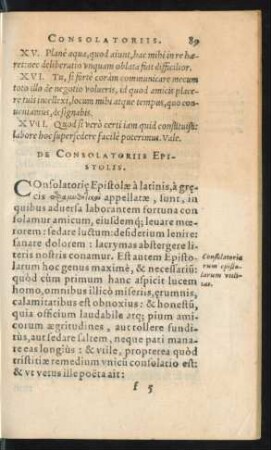 CONSOLATORIIS. 89
XV. Planè aqua, quod aiunt, hac mihi in re hæ-
ret: nec deliberatio vnquam oblata fiat difficilior.
XVI. Tu, si fortè coràm communicare mecum
toto illo de negotio volueris, id quod amicis place-
re tuis intellexi, locum mihi atque tempus, quo con-
ueniamus, designabis.
XVII. Quod si verò certi iam quid constituisti:
labore hoc supersedere facilè poterimus. Vale.
DE CONSOLATORIIS EPI-
STOLIS.
COnsolatorię Epistolæ à latinis, à grę-
cis appellatæ, sunt, in
quibus aduersa laborantem fortuna con
solamur amicum, eiusdemq́; leuare mœ-
rorem: sedare luctum: desiderium lenire:
sanare dolorem: lacrymas abstergere libe-
ris nostris conamur. Est autem Episto-
larum hoc genus maximè, & necessariũ:
quòd cùm primum hanc aspicit lucem
homo, omnibus illicò miserijs, ęrumnis,
calamitatibus est obnoxius: & honestũ,
quia officium laudabile atq; pium ami-
corum ægritudines, aut tollere fundi-
tùs, aut sedare saltem, neque pati mana-
re eas longiùs: & vtile, propterea quòd
tristitiæ remedium vnicũ consolatio est:
& vt vetus ille poëta ait:
Consolatoria
rum episto-
larum
f 5